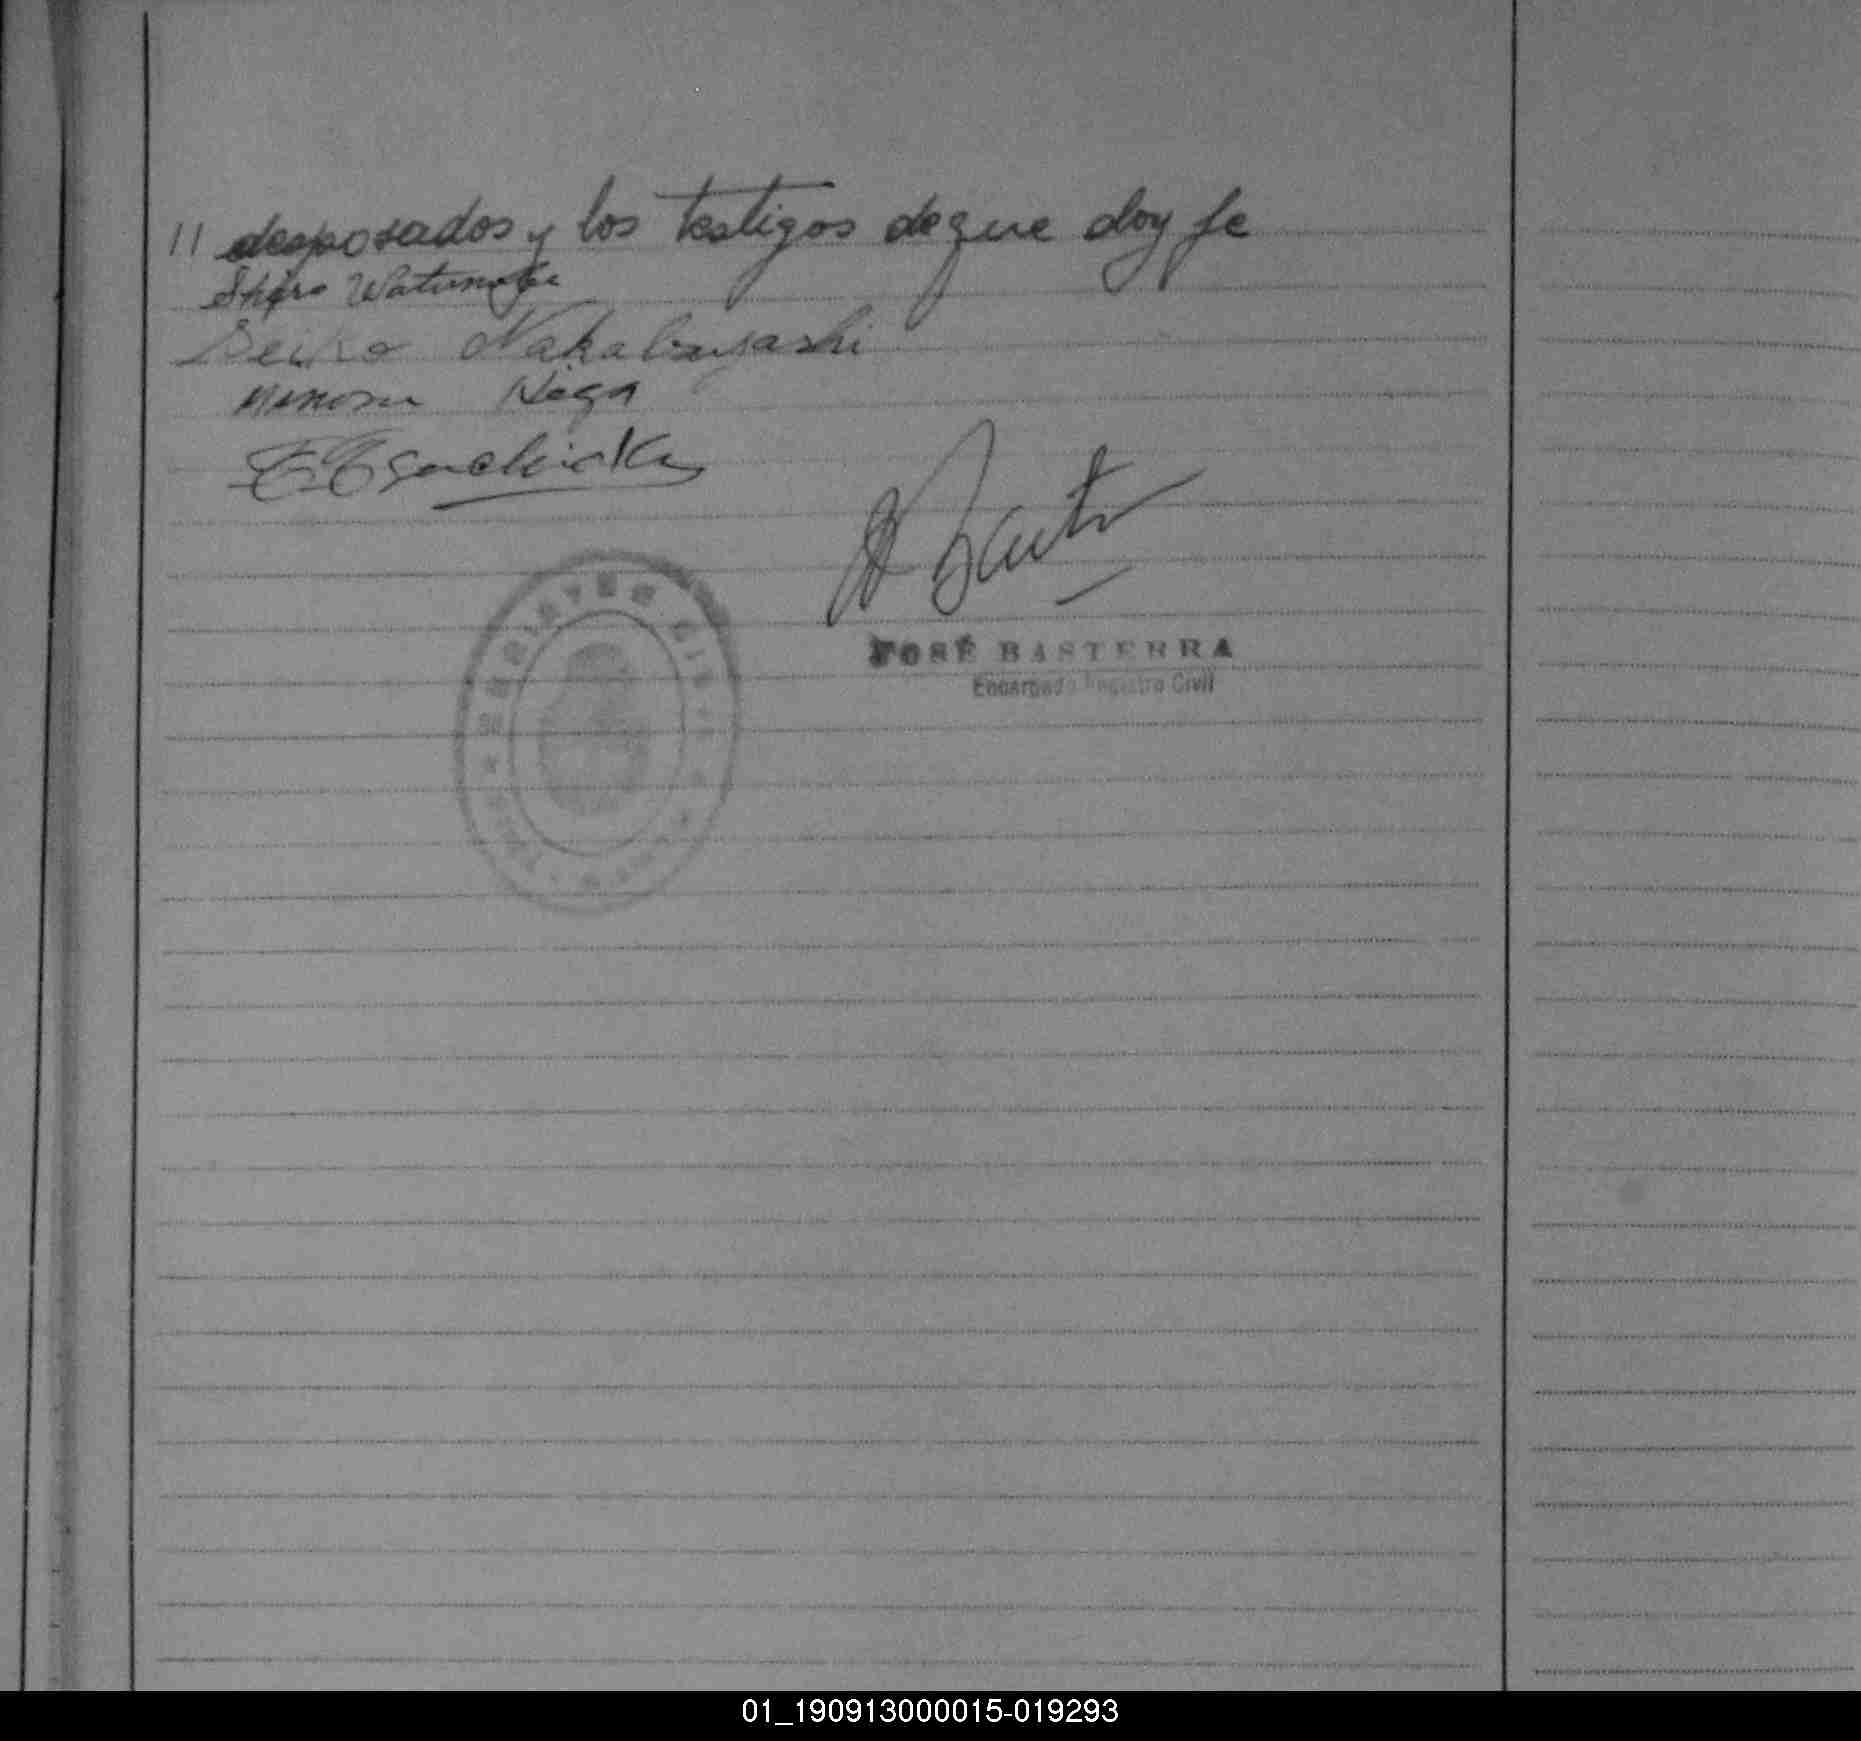 11 desposados y los testigos de que doy fe
Shiro Watanabe
Seiko Nakabayashi
Minoru Niga
JOSÉ BASTERRA
Encargado Registro Civil
REGISTRO CIVIL
01_190913000015-019293